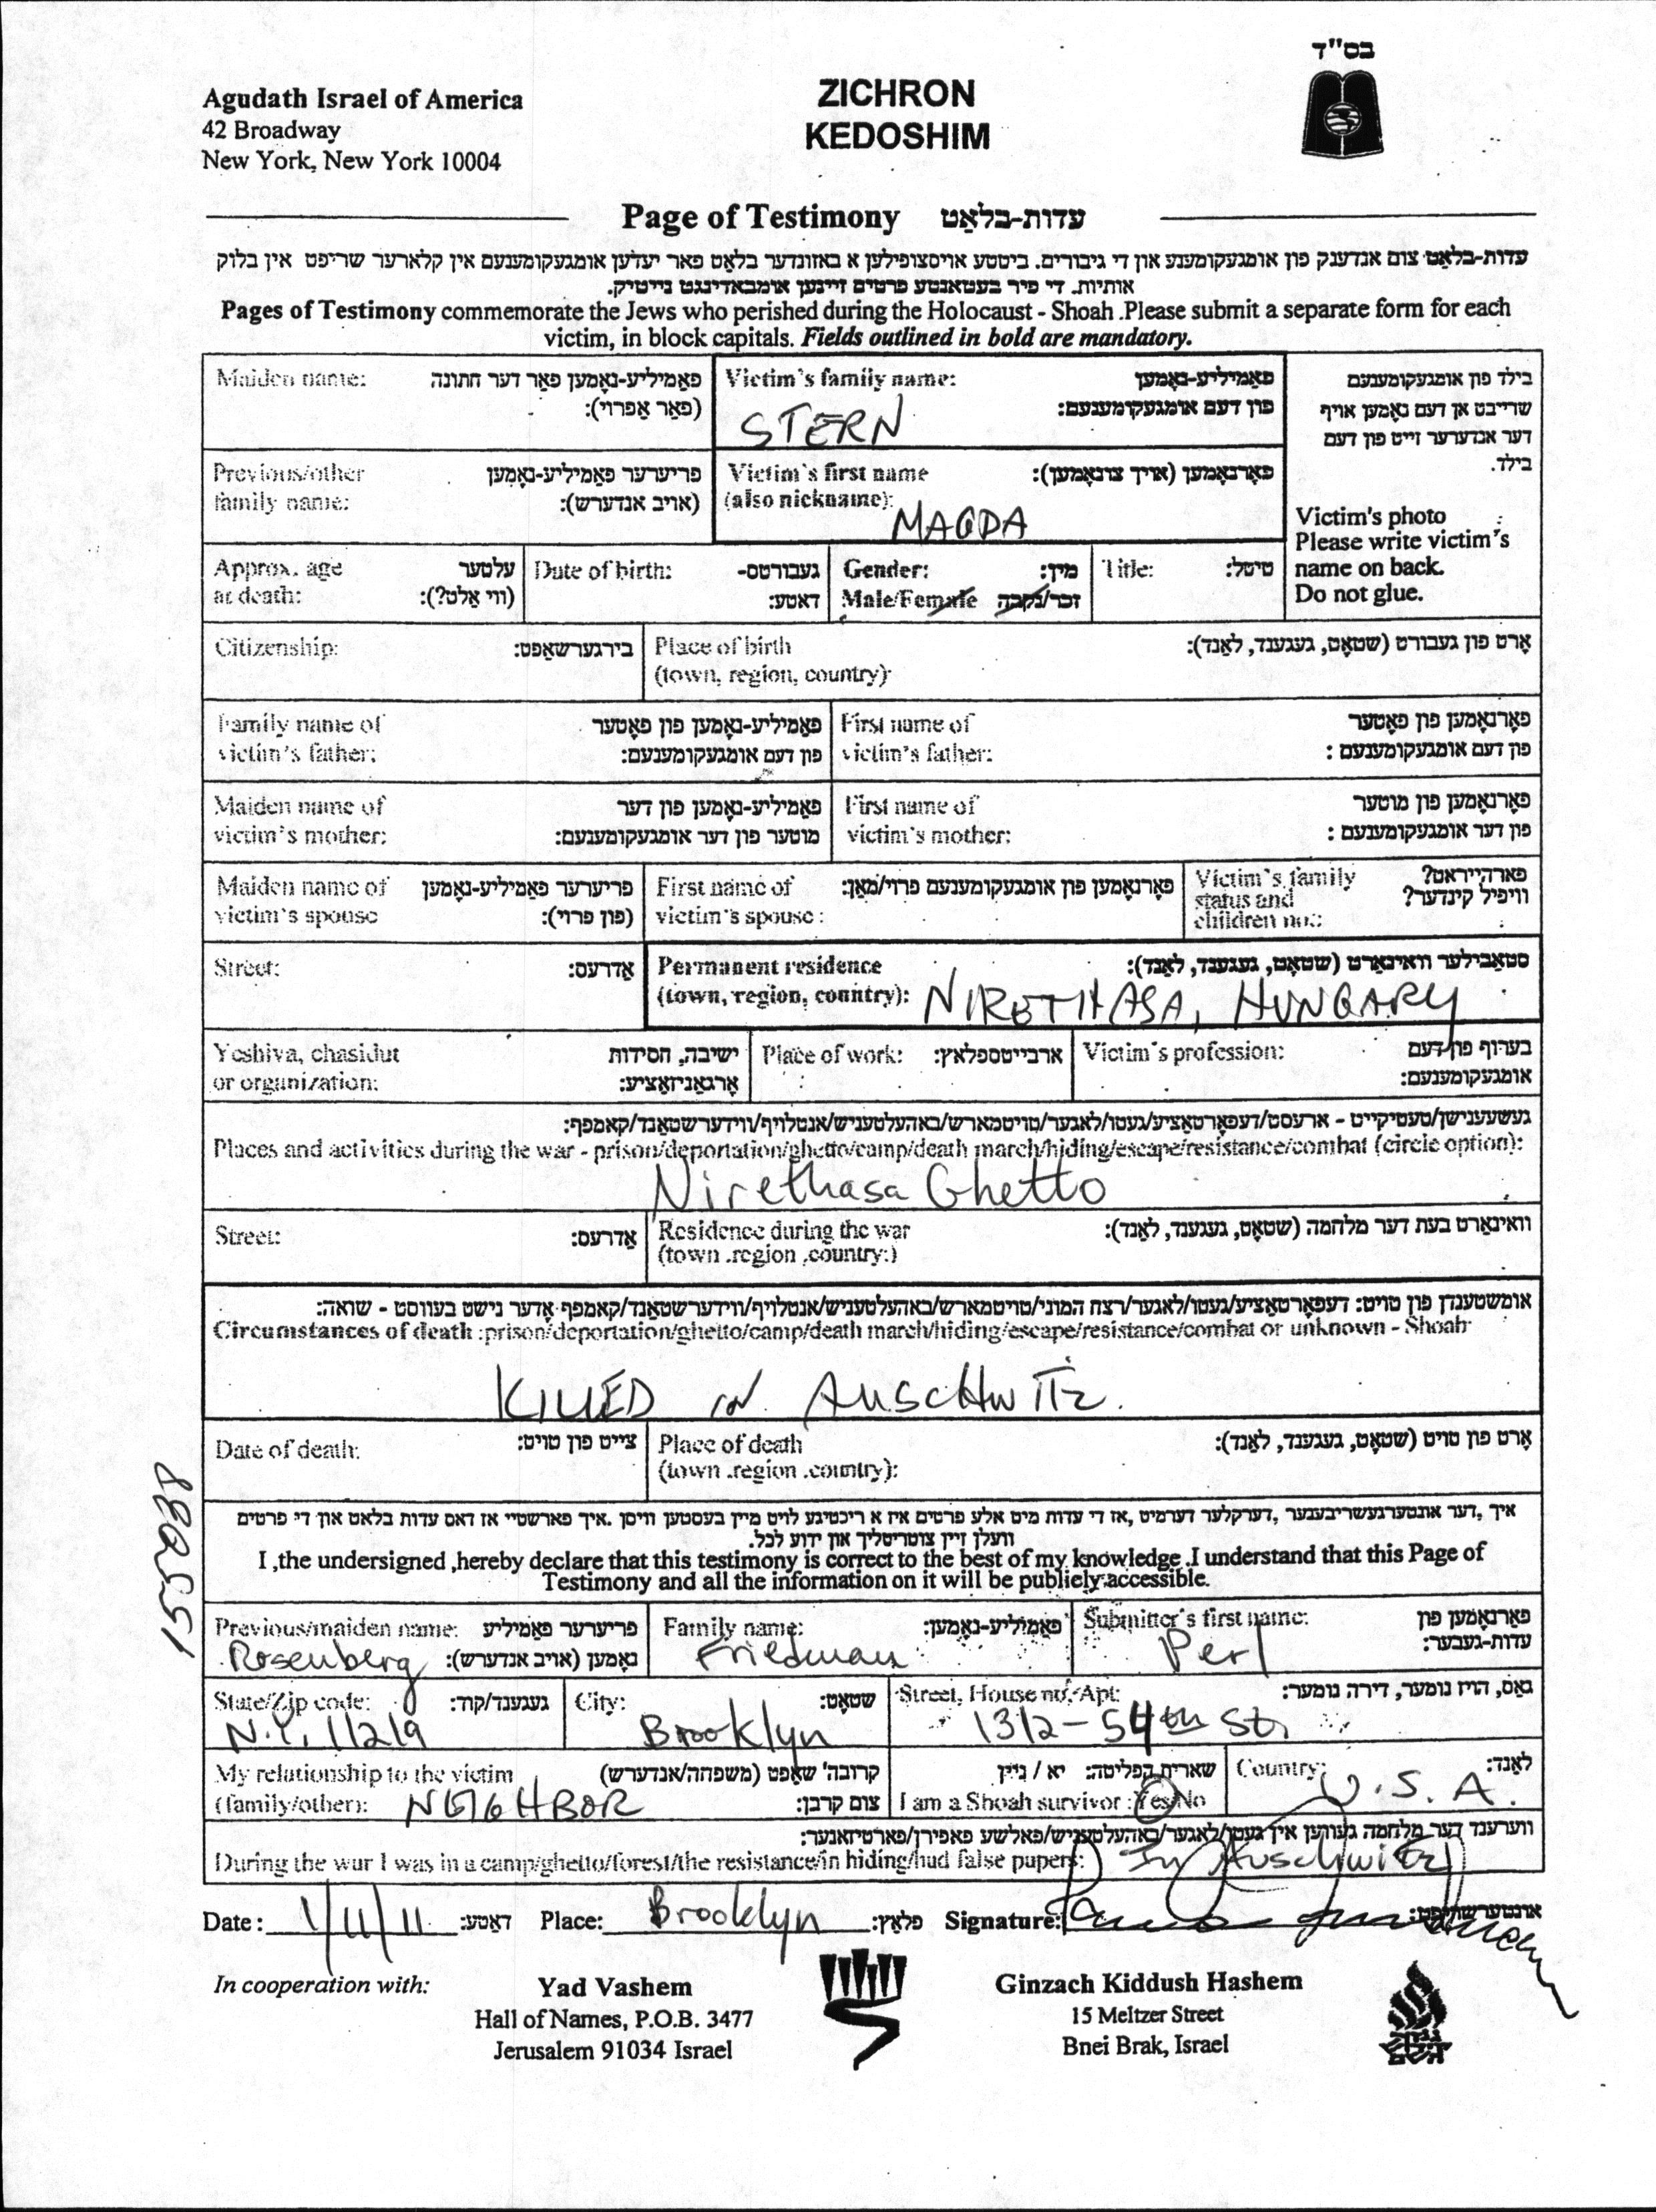 בס"ד
Agudath Israel of America
42 Broadway
New York, New York 10004
ZICHRON
KEDOSHIM
Page of Testimony עדות-בלאַט
עדות-בלאַט צום אנדענק פון אומגעקומענע און די גיבורים. ביטטע אויסצופילען א באזונדער בלאט פאר יעדען אומגעקומענעם אין קלארער שריפט אין בלוק
אותיות. די פיר בעטאנטע פרטים זיינען אומבאדינגט נייטיק.
Pages of Testimony commemorate the Jews who perished during the Holocaust - Shoah .Please submit a separate form for each
victim, in block capitals. Fields outlined in bold are mandatory.
Maiden name: פאַמיליע-נאָמען פאַר דער חתונה
(פאַר אַפרוי):
Victim's family name: פאַמיליע-נאָמען
פון דעם אומגעקומענעם:
STERN
Previous/other פריערער פאַמיליע-נאָמען
family name: (אויב אנדערש):
Victim's first name פאָרנאָמען (אויך צונאָמען):
(also nickname):
MAGDA
בילד פון אומגעקומענעם
שרייבט אן דעם נאָמען אויף
דער אנדערער זייט פון דעם
בילד.
Victim's photo
Please write victim's
name on back.
Do not glue.
Approx. age עלטער
at death: (ווי אַלט?):
Date of birth: געבורטס-
דאטע:
Gender: מין:
Male/Female זכר/נקבה
Title: טיטל:
Citizenship: בירגערשאַפט:
Place of birth אָרט פון געבורט (שטאָט, געגענד, לאַנד):
(town, region, country)
Family name of פאַמיליע-נאָמען פון פאָטער
victim's father: פון דעם אומגעקומענעם:
First name of פאָרנאָמען פון פאָטער
victim's father: פון דעם אומגעקומענעם :
Maiden name of פאַמיליע-נאָמען פון דער
victim's mother: מוטער פון דער אומגעקומענעם:
First name of פאָרנאָמען פון מוטער
victim's mother: פון דער אומגעקומענעם :
Maiden name of פריערער פאַמיליע-נאָמען
victim's spouse (פון פרוי):
First name of פאָרנאָמען פון אומגעקומענעם פרוי/מאַן:
victim's spouse :
Victim's family פארהייראט?
status and וויפיל קינדער?
children no.:
Street: אַדרעס:
Permanent residence סטאַבילער וואוינאָרט (שטאָט, געגענד, לאַנד):
(town, region, country): NIRETHASA, HUNGARY
Yeshiva, chasidut ישיבה, חסידות
or organization: אָרגאַניזאַציע:
Place of work: ארבייטספלאַץ:
Victim's profession: בערוף פון דעם
אומגעקומענעם:
געשעענישן/טעטיקייט - ארעסט/דעפאָרטאַציע/געטו/לאגער/טויטמארש/באהעלטעניש/אנטלויף/ווידערשטאַנד/קאמפף:
Places and activities during the war - prison/deportation/ghetto/camp/death march/hiding/escape/resistance/combat (circle option):
Nirethasa Ghetto
Street: אַדרעס:
Residence during the war וואוינאָרט בעת דער מלחמה (שטאָט, געגענד, לאַנד):
(town .region .country:)
אומשטענדן פון טויט: דעפאָרטאַציע/געטו/לאגער/רצח המוני/טויטמארש/באהעלטעניש/אנטלויף/ווידערשטאַנד/קאמפף אָדער נישט בעוואוסט - שואה:
Circumstances of death :prison/deportation/ghetto/camp/death march/hiding/escape/resistance/combat or unknown - Shoah
KILLED IN AUSCHWITZ.
Date of death: צייט פון טויט:
Place of death אָרט פון טויט (שטאָט, געגענד, לאַנד):
(town .region .country):
155038
איך ,דער אונטערגעשריבענער ,דערקלער דערמיט ,אז די עדות מיט אלע פרטים איז א ריכטיגע לויט מיין בעסטען וויסן .איך פארשטיי אז דאס עדות בלאט און די פרטים
וועלן זיין צוטריטליך און ידוע לכל.
I ,the undersigned ,hereby declare that this testimony is correct to the best of my knowledge .I understand that this Page of
Testimony and all the information on it will be publicly accessible.
Previous/maiden name: פריערער פאַמיליע
Rosenberg נאָמען (אויב אנדערש):
Family name: פאַמיליע-נאָמען:
Friedman
Submitter's first name: פאָרנאָמען פון
עדות-געבער:
Perl
State/Zip code: געגענד/קוד:
N.Y. 11219
City: שטאָט:
Brooklyn
Street, House no./Apt: גאַס, הויז נומער, דירה נומער:
1312-54th St.
My relationship to the victim קרובה' שאַפט (משפחה/אנדערש)
(family/other): NEIGHBOR צום קרבן:
שארית הפליטה: יא / ניין
I am a Shoah survivor :Yes/No
Country: לאַנד:
U.S.A.
ווערענד דער מלחמה געווען אין געטו/לאגער/באהעלטעניש/פאלשע פאפירן/פארטיזאנער:
During the war I was in a camp/ghetto/forest/the resistance/in hiding/had false papers: In Auschwitz
Date: 1/11/11 דאַטע: Place: Brooklyn פלאַץ: Signature: אונטערשריפט:
In cooperation with:
Yad Vashem
Hall of Names, P.O.B. 3477
Jerusalem 91034 Israel
Ginzach Kiddush Hashem
15 Meltzer Street
Bnei Brak, Israel